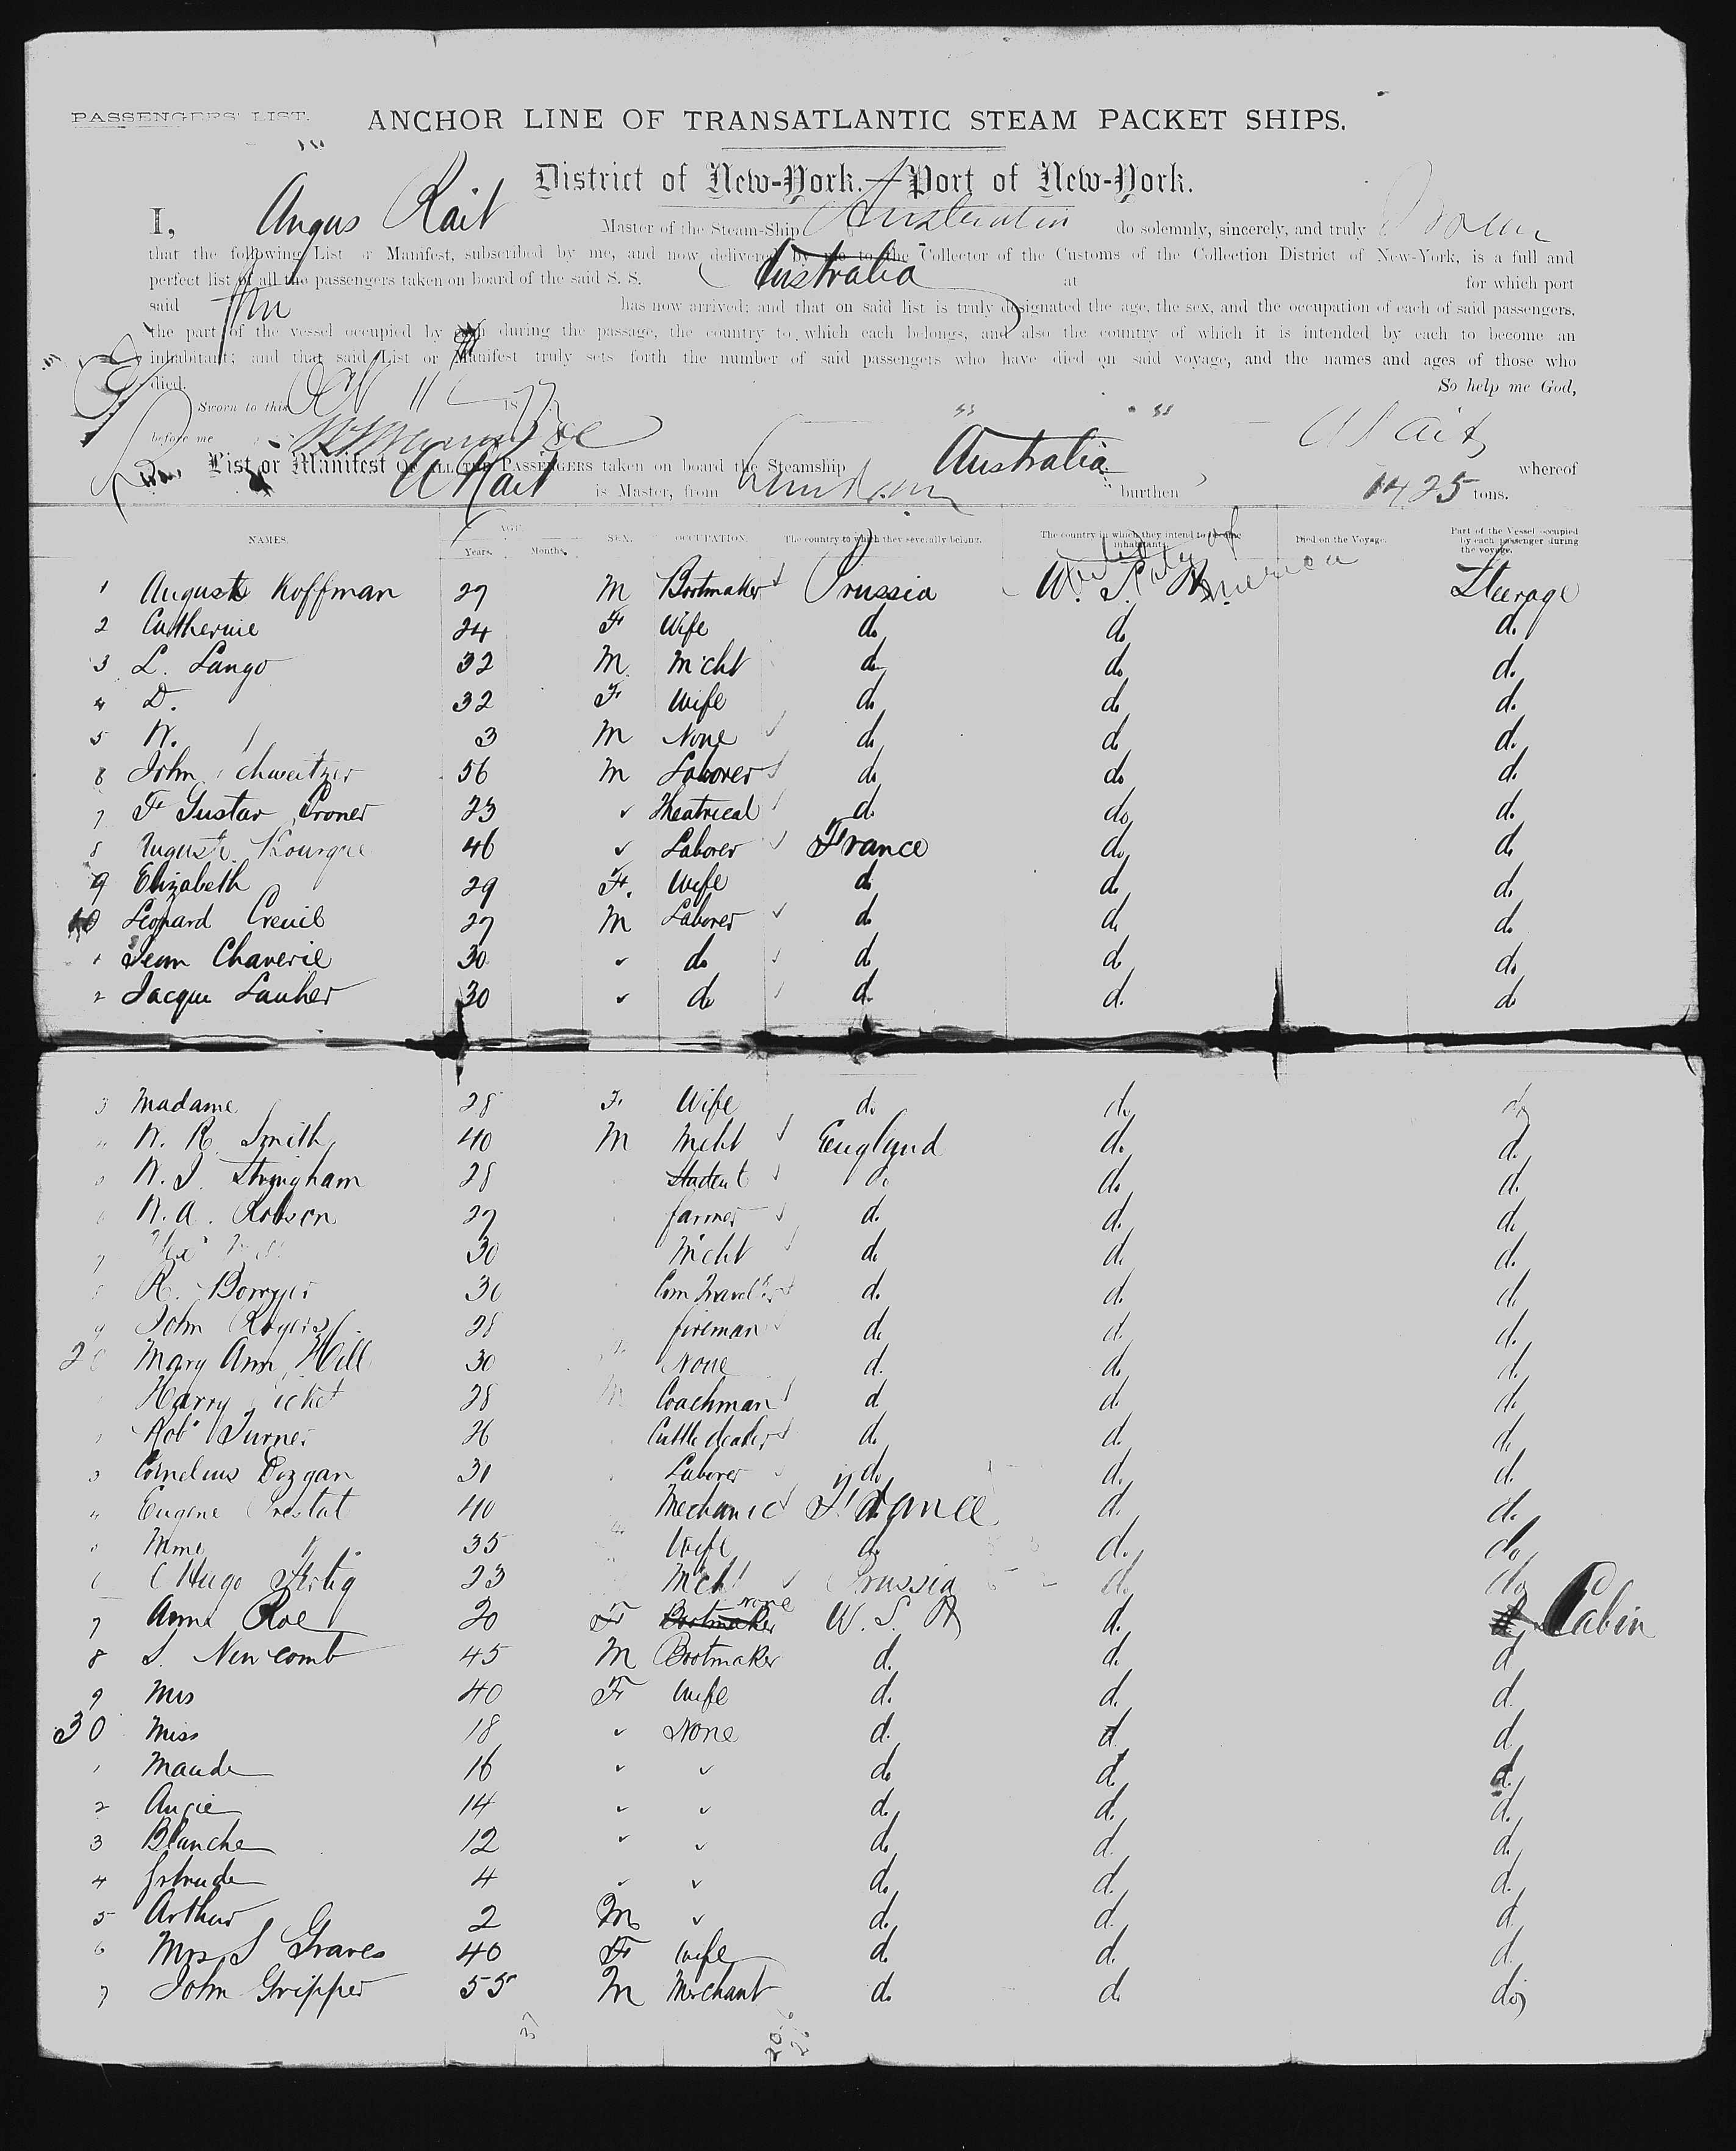 PASSENGERS' LIST.
ANCHOR LINE OF TRANSATLANTIC STEAM PACKET SHIPS.
District of New-York.—Port of New-York.
I, Angus Rait Master of the Steam-Ship do solemnly, sincerely, and truly
that the following List or Manifest, subscribed by me, and now delivered by me to the Collector of the Customs of the Collection District of New-York, is a full and
perfect list of all the passengers taken on board of the said S. S. Australia at for which port
said has now arrived; and that on said list is truly designated the age, the sex, and the occupation of each of said passengers,
the part of the vessel occupied by each during the passage, the country to which each belongs, and also the country of which it is intended by each to become an
inhabitant; and that said List or Manifest truly sets forth the number of said passengers who have died on said voyage, and the names and ages of those who
died. So help me God,
Sworn to this 11 18
before me
List or Manifest OF ALL THE PASSENGERS taken on board the Steamship Australia whereof
A Rait is Master, from burthen 1425 tons.
NAMES. AGE. Years. Months. SEX. OCCUPATION. The country to which they severally belong. The country in which they intend to become inhabitants. Died on the Voyage. Part of the Vessel occupied by each passenger during the voyage.
1 August Koffman 27 M Bootmaker Prussia U. S. America Steerage
2 Catherine 24 F Wife do do do
3 L. Lango 32 M Mcht do do do
4 D. 32 F Wife do do do
5 W. 3 M None do do do
6 John Schweitzer 56 M Laborer do do do
7 F Gustav Croner 23 Theatrical do do do
8 August 46 Laborer France do do
9 Elizabeth 29 F. Wife do do do
10 Leopard Creuil 27 M Laborer do do do
1 Jean Chaverie 30 do do do do
2 Jacque Lauher 30 do do do do
3 Madame 28 F Wife do do do
4 W. R. Smith 40 M Mcht England do do
5 W. J. Stringham 28 Student do do do
6 W. A. Robson 27 farmer do do do
7 30 Mcht do do do
8 R. 30 Com Traveller do do do
9 John Rogers 28 fireman do do do
20 Mary Ann Hill 30 None do do do
Harry 28 M Coachman do do do
2 Robt Turner 26 Cattle dealer do do do
3 Cornelius 31 Laborer do do do
4 Eugene Prestat 40 Mechanic France do do
5 Mme 35 Wife do do do
6 C Hugo 23 Mcht Prussia do do
7 Anna Roe 20 F none U. S. A do Cabin
8 S. Newcomb 45 M Bootmaker do do do
9 Mrs 40 F Wife do do do
30 Miss 18 None do do do
1 Maude 16 do do do
2 Angie 14 do do do
3 Blanche 12 do do do
4 Gertrude 4 do do do
5 Arthur 2 M do do do
6 Mrs S Graves 40 F Wife do do do
7 John Gripper 55 M Merchant do do do
37